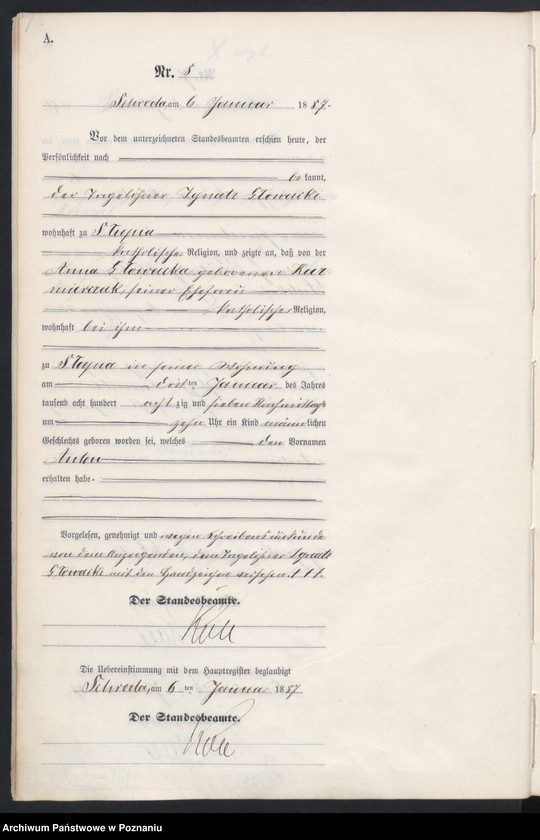 A.
Nr. 8
Schroda, am 6 Januar 1887.
Vor dem unterzeichneten Standesbeamten erschien heute, der
Persönlichkeit nach
be kannt,
der Tagelöhner Ignatz Glowacki
wohnhaft zu
katholischer Religion, und zeigte an, daß von der
Anna Glowacka geborenen Kaz
mierczak, seiner Ehefrau
katholischer Religion,
wohnhaft bei ihm
zu in seiner Wohnung
am dritten Januar des Jahres
tausend acht hundert acht zig und sieben Nachmittags
um zehn Uhr ein Kind männlichen
Geschlechts geboren worden sei, welches den Vornamen
Anton
erhalten habe.
Vorgelesen, genehmigt und wegen Schreibensunkunde
von dem Anzeigenden, dem Tagelöhner Ignatz
Glowacki mit den Handzeichen versehen. †††.
Der Standesbeamte.
Die Uebereinstimmung mit dem Hauptregister beglaubigt
Schroda, am 6 ten Januar 1887
Der Standesbeamte.
Archiwum Państwowe w Poznaniu